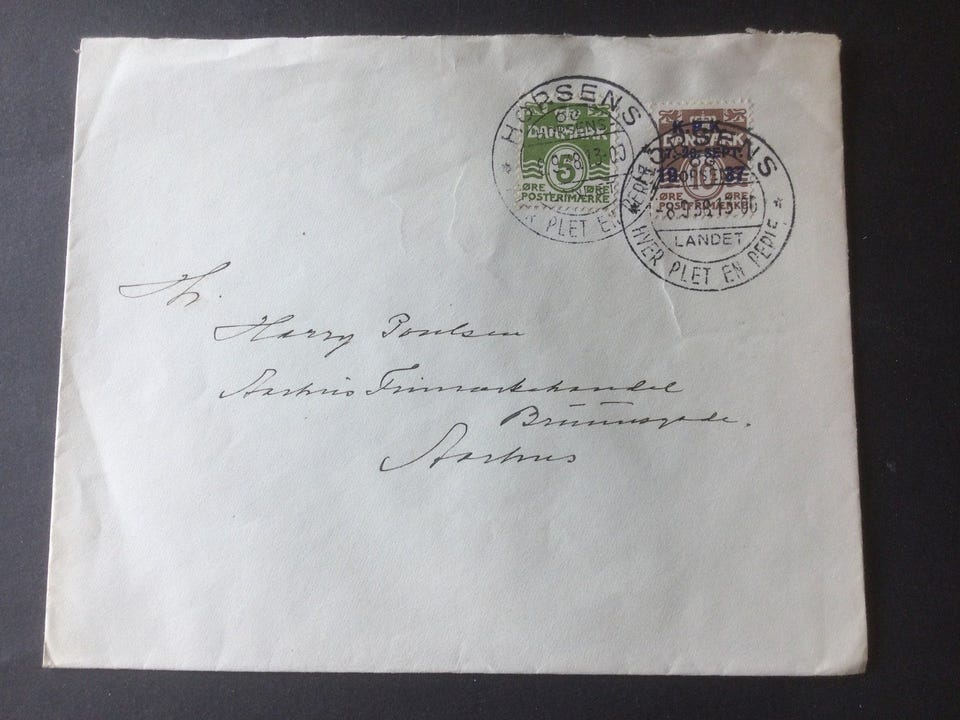 HORSENS
DANMARK
5
ØRE ØRE
POSTFRIMÆRKE
HVER PLET EN PERLE
K.P.K.
17.-26. SEPT.
19 37
DANMARK
10
ØRE ØRE
POSTFRIMÆRKE
HORSENS
LANDET
HVER PLET EN PERLE
Hr.
Harry Poulsen
Aarhus Frimærkehandel
Bruunsgade.
Aarhus